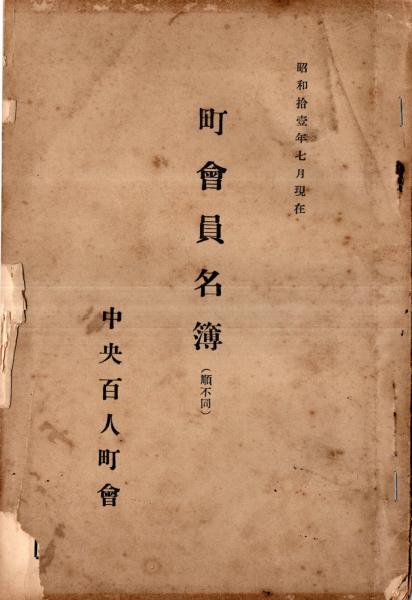 昭和拾壹年七月現在
町會員名簿(順不同)
中央百人町會